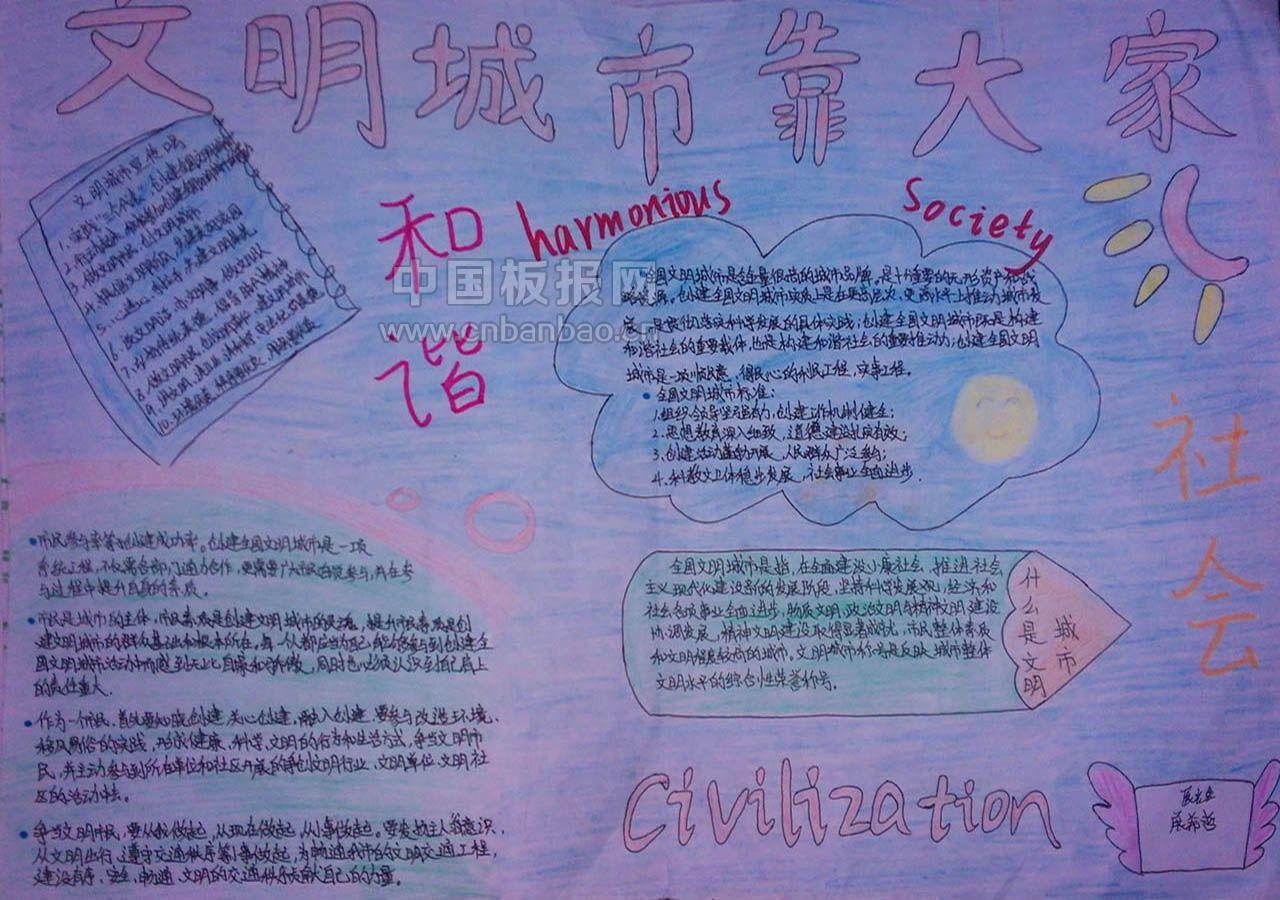 文明城市靠大家
文明城市宣传吗
1.实践"三个代表"创建全国文明城市
3.做文明市民 创文明城市
和谐
harmonious
Society
社会
中国板报网
www.cnbanbao.cn
全国文明城市是含金量很高的城市品牌。是十个重要的无形资产和战
略资源。创建全国文明城市实质上是在更高层次、更高水平上推动城市发
展。是贯彻落实科学发展的具体实践；创建全国文明城市既是构建
和谐社会的重要载体，也是构建和谐社会的重要推动力；创建全国文明
城市是一项顺民意、得民心的利民工程，实事工程。
全国文明城市标准：
1.组织领导坚强有力，创建工作机制健全；
2.思想教育深入细致，道德建设扎实有效；
3.创建活动蓬勃开展，人民群众广泛参与；
4.科教文卫体稳步发展，社会事业全面进步．
市民参与率等于创建成功率。创建全国文明城市是一项
系统工程，不仅需各部门通力合作，更需要广大市民自觉参与，并在参
与过程中提升自身的素质．
市民是城市的主体，市民素质是创建文明城市的灵魂。提升市民素质是创
建文明城市的群众基础和根本所在，每一个人都应当为自己能够参与到创建全
国文明城市活动中而感到无比自豪和骄傲，同时也必须认识到自己肩上
的责任重大．
作为一个市民，首先要知晓创建、关心创建，融入创建，要参与改造环境、
移风易俗的实践，形成健康、科学、文明的行为和生活方式，争当文明市
民，并主动参与到所在单位和社区开展的争创文明行业、文明单位、文明社
区的活动中去。
争当文明市民，要从我做起，从现在做起，从小事做起。要发扬主人翁意识，
从文明出行，遵守交通秩序等小事做起，为畅通我市的文明交通工程，
建设有序、安全、畅通、文明的交通秩序贡献自己的力量。
全国文明城市是指，在全面建设小康社会，推进社会
主义现代化建设新的发展阶段，坚持科学发展观，经济和
社会各项事业全面进步，物质文明，政治文明与精神文明建设
协调发展，精神文明建设取得显著成就，市民整体素质
和文明程度较高的城市。文明城市称号是反映城市整体
文明水平的综合性荣誉称号．
什么是文明
城市
Civilization